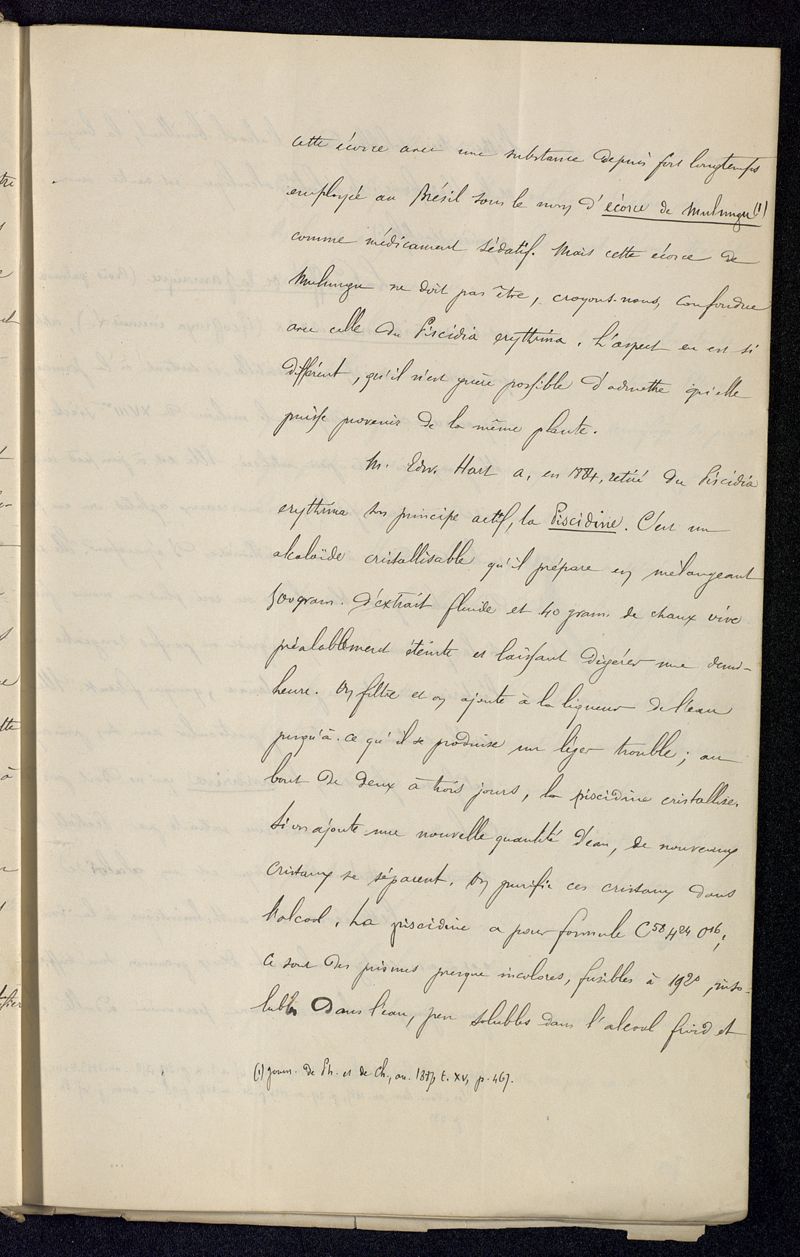 cette écorce avec une substance depuis fort longtemps
employée au Brésil sous le nom d'écorce de Mulungu (1)
comme médicament sédatif. Mais cette écorce de
Mulungu ne doit pas être, croyons-nous, confondue
avec celle du Piscidia erythrina. L'aspect en est si
différent, qu'il n'est guère possible d'admettre qu'elle
puisse provenir de la même plante.
M. Edw. Hart a, en 1884, retiré du Piscidia
erythrina son principe actif, la Piscidine. C'est un
alcaloïde cristallisable qu'il prépare en mélangeant
500 gram. d'extrait fluide et 40 gram. de chaux vive
préalablement éteinte et laissant digérer une demi-
heure. On filtre et on ajoute à la liqueur de l'eau
jusqu'à ce qu'il se produise un léger trouble ; au
bout de deux à trois jours, la piscidine cristallise.
Si on ajoute une nouvelle quantité d'eau, de nouveaux
cristaux se séparent. On purifie ces cristaux dans
l'alcool. La piscidine a pour formule C58 H24 O16;
ce sont des prismes presque incolores, fusibles à 192°, inso-
lubles dans l'eau, peu solubles dans l'alcool froid et
(1) Journ. de Ph. et de Ch., an. t. XV, p. 467.
tre
et
tte
à